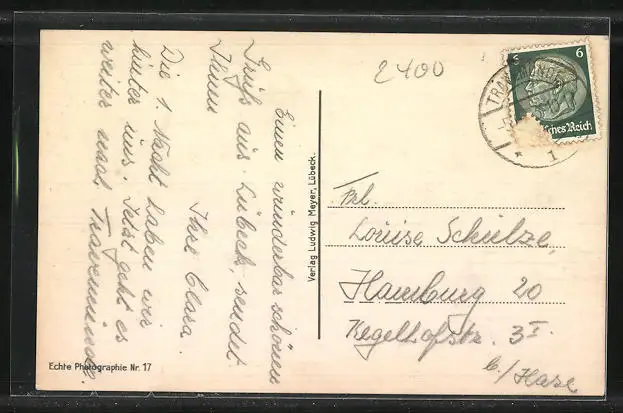 Einen wunderbar schönen
Gruß aus Lübeck, sendet
Ihnen
Ihre Clara.
Die 1. Nacht haben wir
hinter uns. Jetzt geht es
weiter nach Travemünde.
Echte Photographie Nr. 17
Verlag Ludwig Meyer, Lübeck.
2400
6
Reich
1
Frl.
Louise Schulze,
Hamburg 20
Kegelhofstr. 3 I.
b./Hase